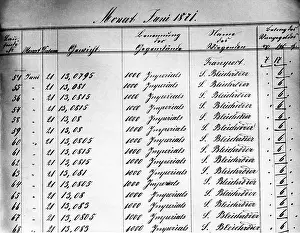 Monat Juni 1871.
Gewicht Benennung der Gegenstände Name des Wiegenden Betrag der
Transport 7 12
54 Juni 21 13,0795 1000 Imperials S. Bleichröder 6
55 21 13,081 1000 Imperials S. Bleichröder 6
56 21 13,0815 1000 Imperials S. Bleichröder 6
57 21 13,0815 1000 Imperials S. Bleichröder 6
58 21 13,08 1000 Imperials S. Bleichröder 6
59 21 13,081 1000 Imperials S. Bleichröder 6
60 21 13,0805 1000 Imperials S. Bleichröder 6
61 21 13,0815 1000 Imperials S. Bleichröder 6
62 21 13,0815 1000 Imperials S. Bleichröder 6
63 21 13,081 1000 Imperials S. Bleichröder 6
64 21 13,0805 1000 Imperials S. Bleichröder 6
65 21 13,08 1000 Imperials S. Bleichröder 6
66 21 13,083 1000 Imperials S. Bleichröder 6
67 21 13,0805 1000 Imperials S. Bleichröder 6
68 21 13,083 1000 Imperials S. Bleichröder 6